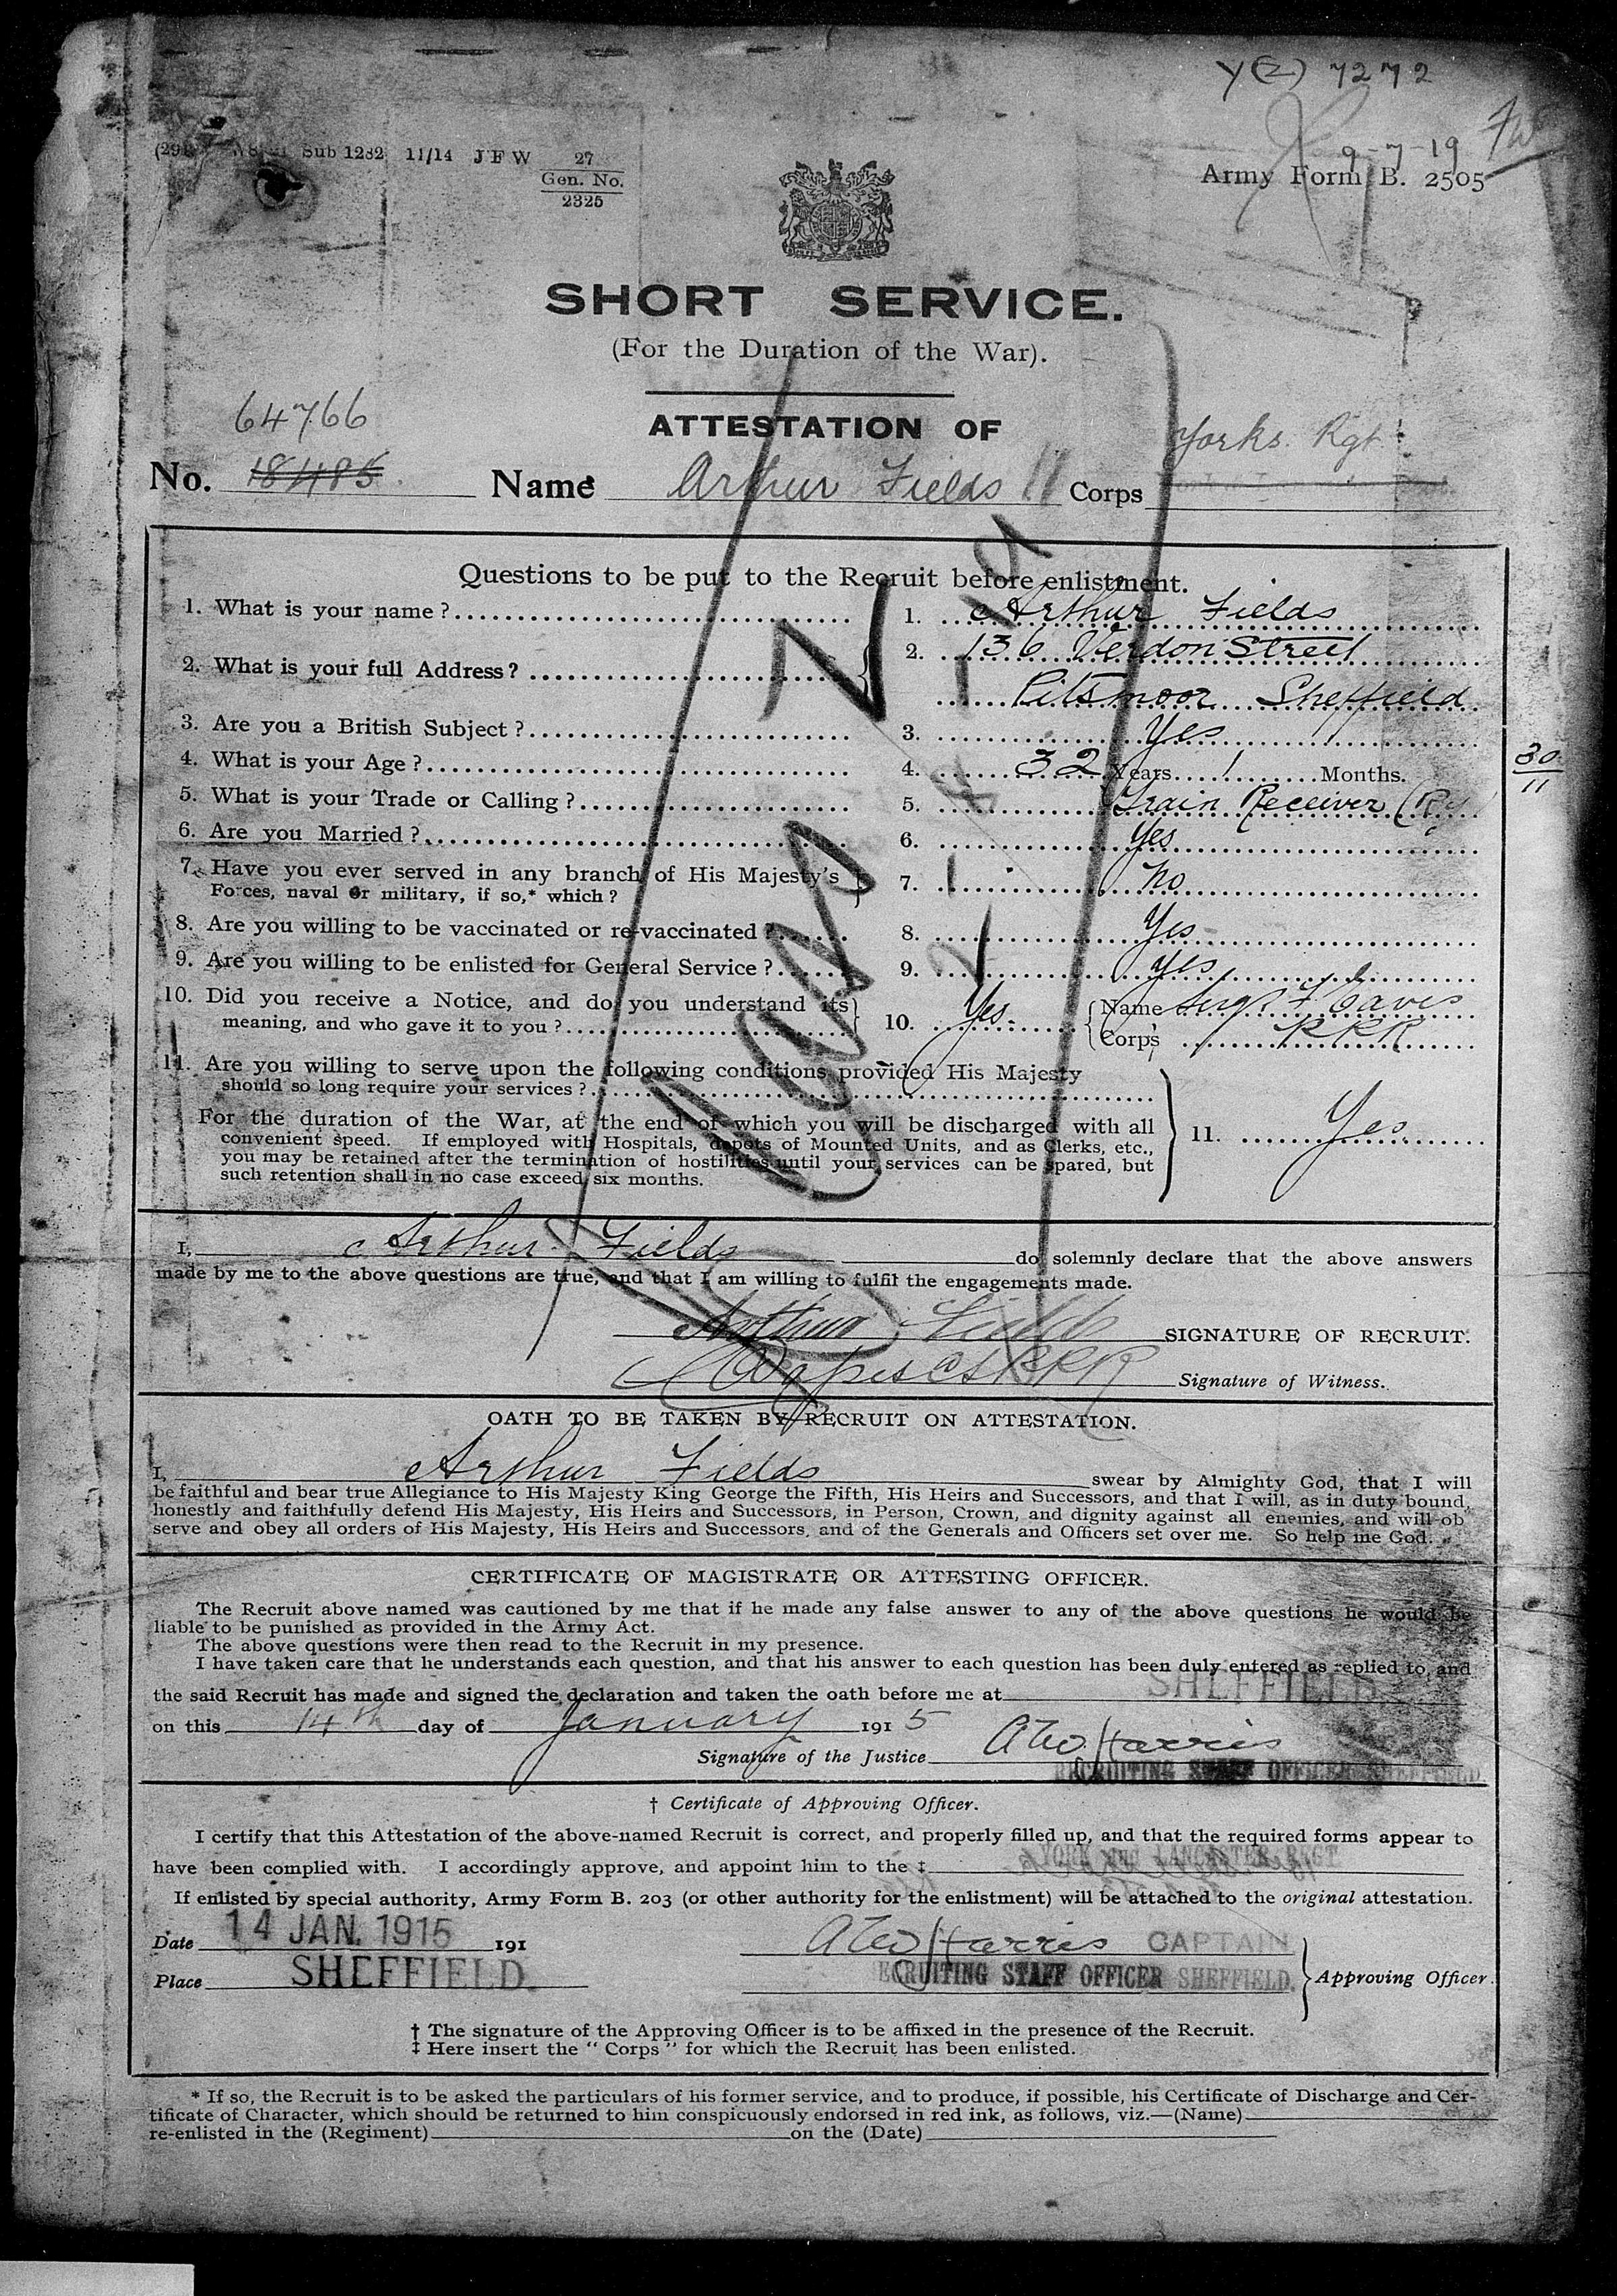 Y(2) 7272
9-7-19
Sub 1282 11/14 J F W 27
Gen. No.
2325
Army Form B. 2505
SHORT SERVICE.
(For the Duration of the War).
64766
ATTESTATION OF
Yorks. Rgt.
No. 18485 Name Arthur Fields Corps
Questions to be put to the Recruit before enlistment.
1. What is your name ? 1. Arthur Fields
2. What is your full Address ? 2. 136 Verdon Street
Pitsmoor Sheffield
3. Are you a British Subject ? 3. Yes
4. What is your Age ? 4. 32 Years 1 Months.
30
11
5. What is your Trade or Calling ? 5. Train Receiver (Ry
6. Are you Married ? 6. Yes
7. Have you ever served in any branch of His Majesty's
Forces, naval or military, if so,* which ? 7. No
8. Are you willing to be vaccinated or re-vaccinated ? 8. Yes
9. Are you willing to be enlisted for General Service ? 9. Yes
10. Did you receive a Notice, and do you understand its
meaning, and who gave it to you ? 10. Yes. Name
Corps R R R
11. Are you willing to serve upon the following conditions provided His Majesty
should so long require your services ?
For the duration of the War, at the end of which you will be discharged with all
convenient speed. If employed with Hospitals, depots of Mounted Units, and as Clerks, etc.,
you may be retained after the termination of hostilities until your services can be spared, but
such retention shall in no case exceed six months.
11. Yes.
I, Arthur Fields do solemnly declare that the above answers
made by me to the above questions are true, and that I am willing to fulfil the engagements made.
Arthur Fields SIGNATURE OF RECRUIT.
Signature of Witness.
OATH TO BE TAKEN BY RECRUIT ON ATTESTATION.
I, Arthur Fields swear by Almighty God, that I will
be faithful and bear true Allegiance to His Majesty King George the Fifth, His Heirs and Successors, and that I will, as in duty bound,
honestly and faithfully defend His Majesty, His Heirs and Successors, in Person, Crown, and dignity against all enemies, and will ob
serve and obey all orders of His Majesty, His Heirs and Successors, and of the Generals and Officers set over me. So help me God.
CERTIFICATE OF MAGISTRATE OR ATTESTING OFFICER.
The Recruit above named was cautioned by me that if he made any false answer to any of the above questions he would be
liable to be punished as provided in the Army Act.
The above questions were then read to the Recruit in my presence.
I have taken care that he understands each question, and that his answer to each question has been duly entered as replied to, and
the said Recruit has made and signed the declaration and taken the oath before me at SHEFFIELD.
on this 14th day of January 1915
Signature of the Justice Harris
RECRUITING STAFF OFFICER SHEFFIELD
† Certificate of Approving Officer.
I certify that this Attestation of the above-named Recruit is correct, and properly filled up, and that the required forms appear to
have been complied with. I accordingly approve, and appoint him to the ‡ YORK AND LANCASTER REGT
If enlisted by special authority, Army Form B. 203 (or other authority for the enlistment) will be attached to the original attestation.
Date 14 JAN. 1915 191
Harris CAPTAIN
Place SHEFFIELD.
ECRUITING STAFF OFFICER SHEFFIELD. Approving Officer.
† The signature of the Approving Officer is to be affixed in the presence of the Recruit.
‡ Here insert the “ Corps ” for which the Recruit has been enlisted.
* If so, the Recruit is to be asked the particulars of his former service, and to produce, if possible, his Certificate of Discharge and Cer-
tificate of Character, which should be returned to him conspicuously endorsed in red ink, as follows, viz.—(Name)
re-enlisted in the (Regiment) on the (Date)